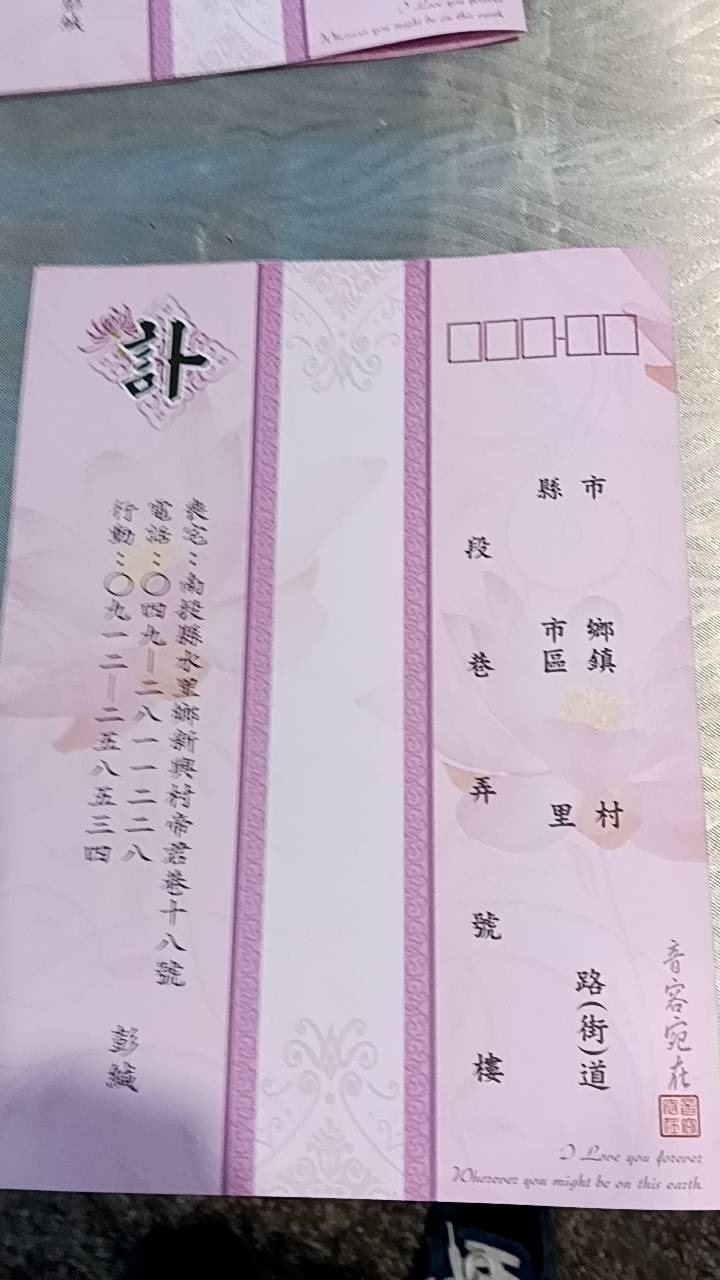 縣市
鄉鎮
市區
村
里
路(街)道
段
巷
弄
號
樓
音容宛在
I Love you forever
Wherever you might be on this earth.
訃
喪宅：南投縣水里鄉新興村帝君巷十八號
電話：〇四九—二八一一二二八
行動：〇九一二—二五八五三四
彭緘